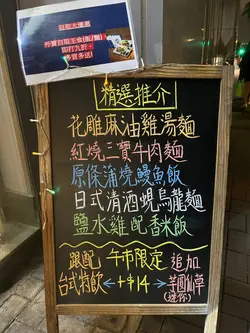 自取大優惠
外賣自取主食(飯/麵)
即打九折,
多買多送!
精選推介
花雕麻油雞湯麵
紅燒三寶牛肉麵
原條蒲燒鰻魚飯
日式清酒蜆烏龍麵
鹽水雞配香米飯
跟配 午市限定 追加
台式特飲 ←+$14→ 芋圓仙草
(迷你)